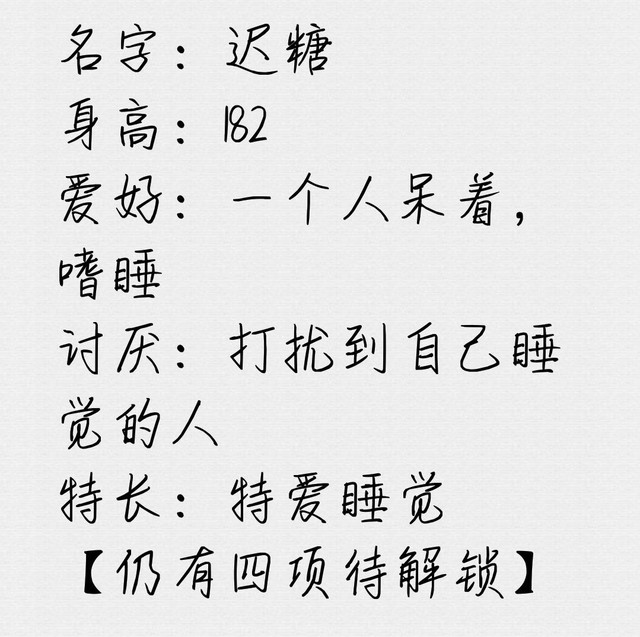 名字：迟糖
身高：182
爱好：一个人呆着，
嗜睡
讨厌：打扰到自己睡
觉的人
特长：特爱睡觉
【仍有四项待解锁】